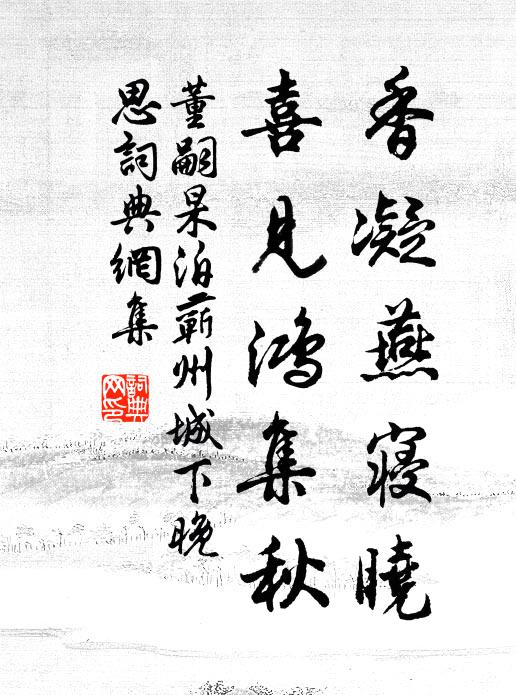 香凝燕寝曉
喜見鴻集秋
董嗣杲泊蘄州城下晚
思詞典網集
詞典
网印